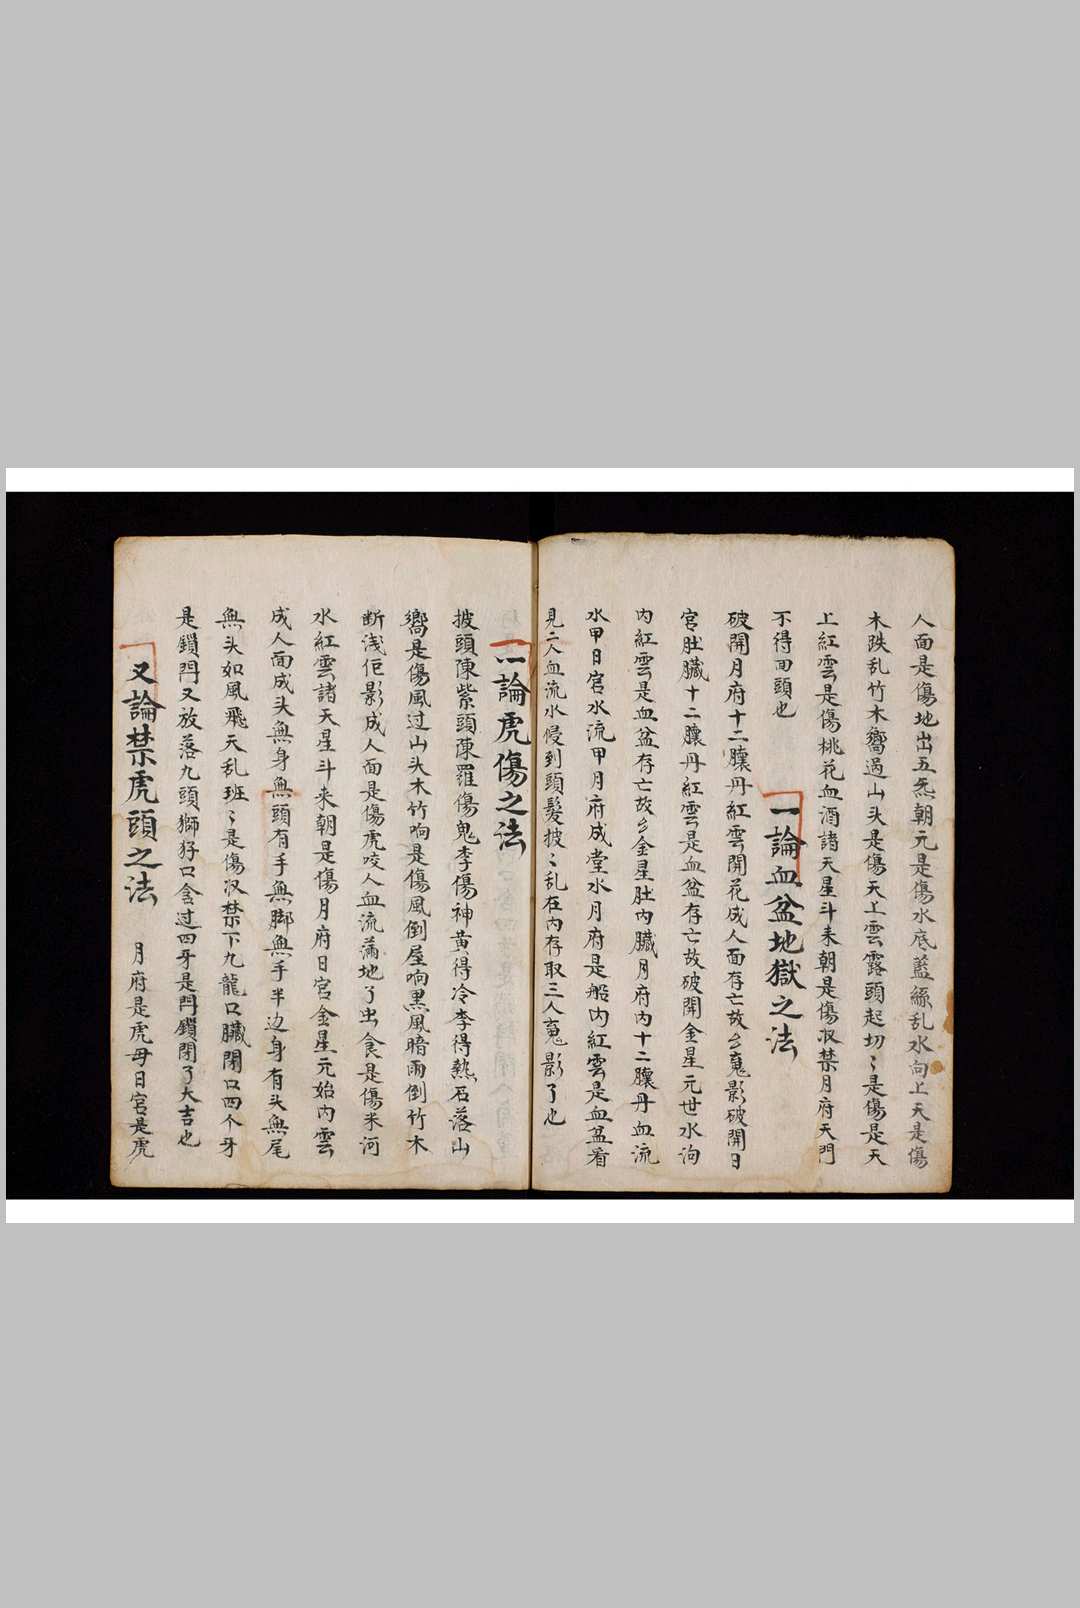 人面是傷地出五炁朝元是傷水底藍絲乱水向上天是傷
木跌乱竹木嚮過山头是傷天上雲露頭起切〻是傷是天
上紅雲是傷桃花血酒諸天星斗来朝是傷収禁月府天門
不得回頭也
一論血盆地獄之法
破開月府十二臟丹紅雲開花成人面存亡故乡䰟影破開日
宮肚臟十二臟丹紅雲是血盆存亡故破開金星元世水沟
内紅雲是血盆存亡故乡金星肚内臟月府内十二臟丹血流
水甲日宮水流甲月府成堂水月府是船内紅雲是血盆看
見二人血流水侵到頭髮披〻乱在内存取三人䰟影了也
一論虎傷之法
披頭陳紫頭陳羅傷鬼李傷神黄得冷李得熱石落山
嚮是傷風过山头木竹响是傷風倒屋响黒風暗雨倒竹木
断浅佢影成人面是傷虎咬人血流满地了出食是傷米河
水紅雲諸天星斗来朝是傷月府日宮金星元始内雲
成人面成头無身無頭有手無脚無手半边身有头無尾
無头如風飛天乱班〻是傷収禁下九龍口臟閉口四个牙
是鎖門又放落九頭獅狩口含过四牙是門鎖閉了大吉也
又論禁虎頭之法
月府是虎母日宮是虎